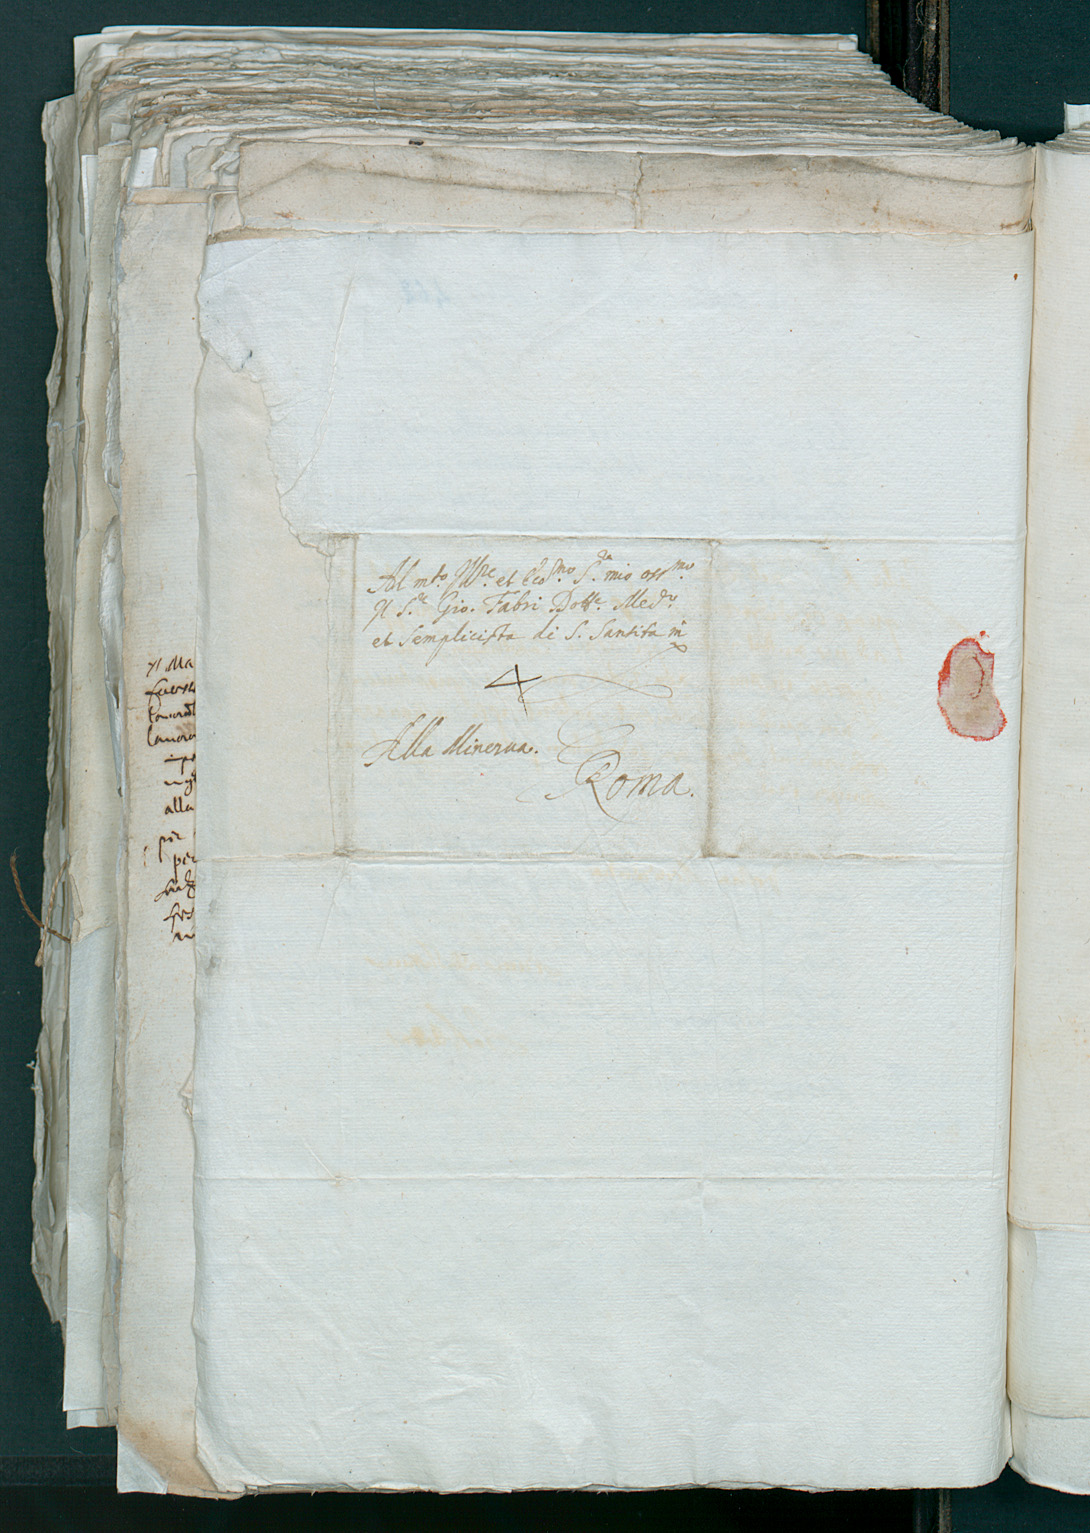 Al m.to Ill.re et Ecc.mo S.re mio oss.mo
Il S.re Gio. Fabri Dott.e Med.o
et Semplicista di S. Santita in
4
Alla Minerua.
Roma.
Il Ma
alla
per